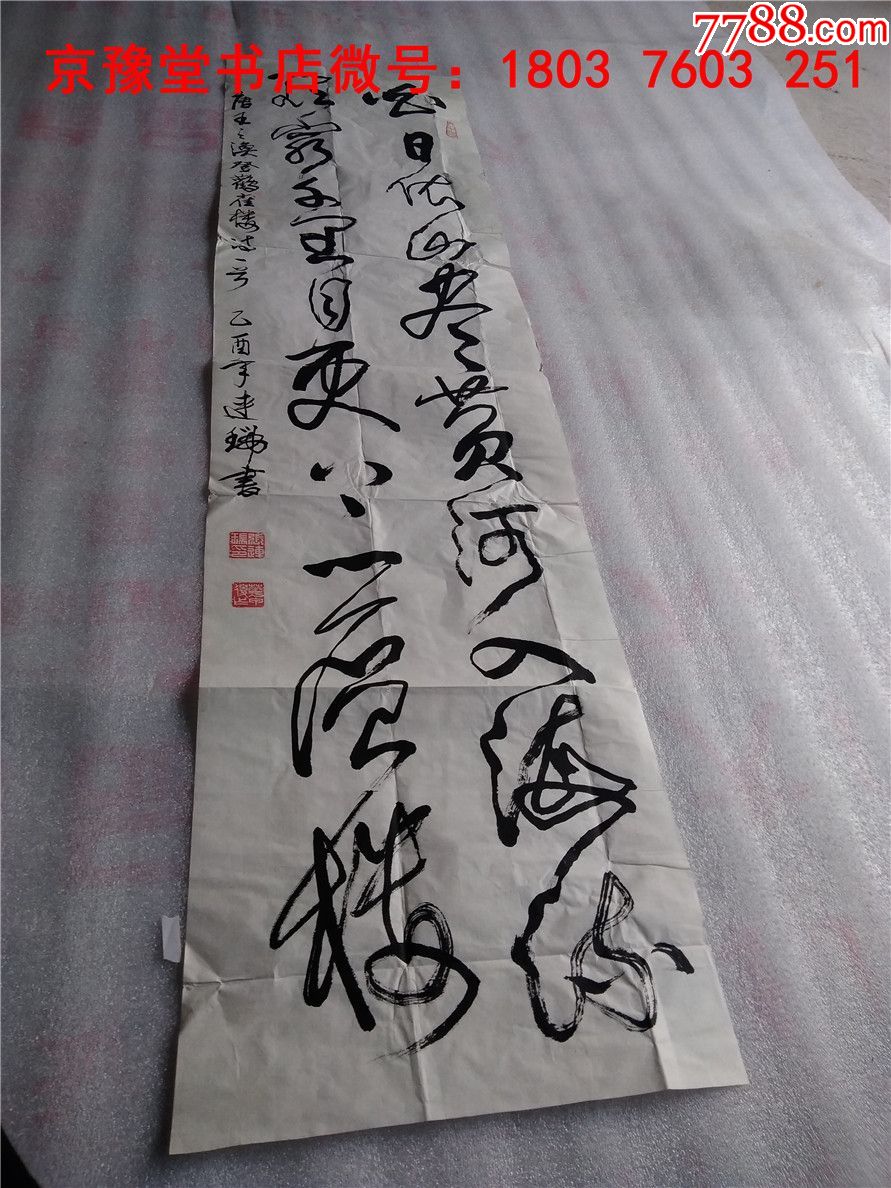 7788.com
京豫堂书店微号：1803 7603 251
白日依山尽黄河入海流
欲穷千里目更上一层楼
唐王之涣登鹳雀楼诗一首 乙酉年连瑞书